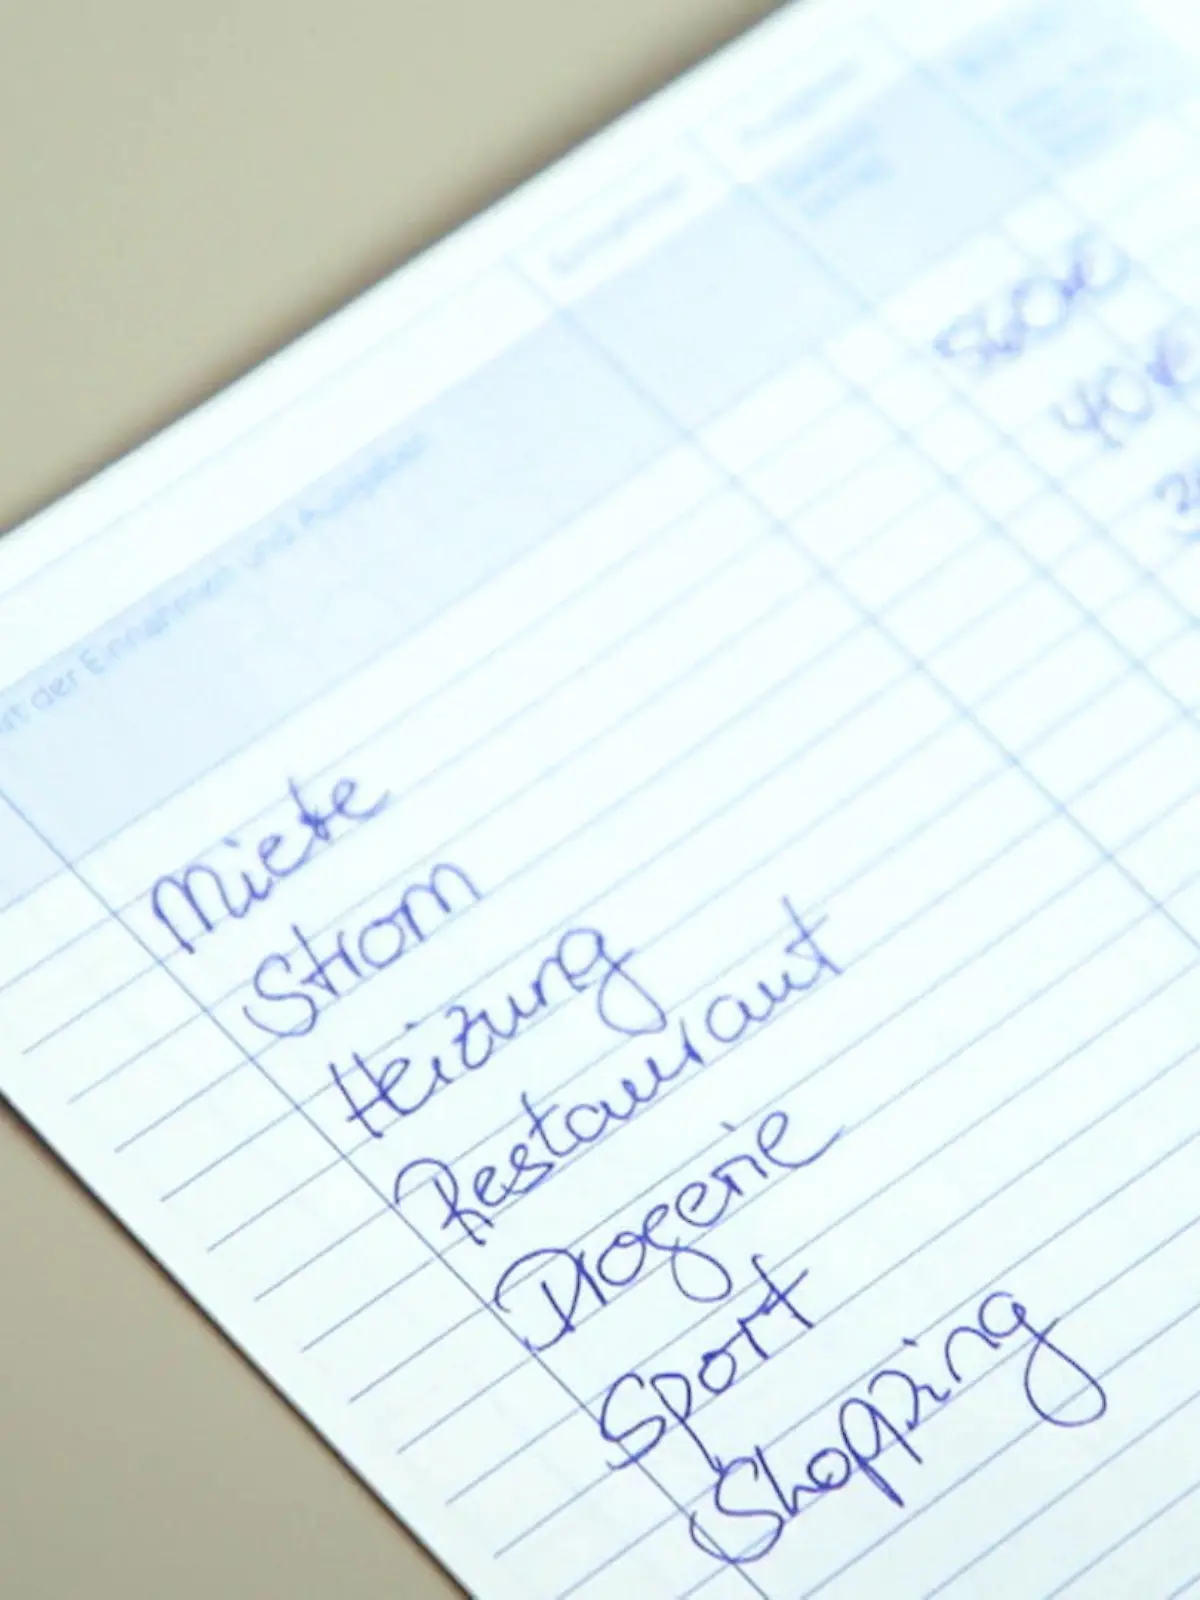 der Einnahmen und Ausgaben
Miete 560€
Strom 40€
Heizung
Restaurant
Drogerie
Sport
Shopping